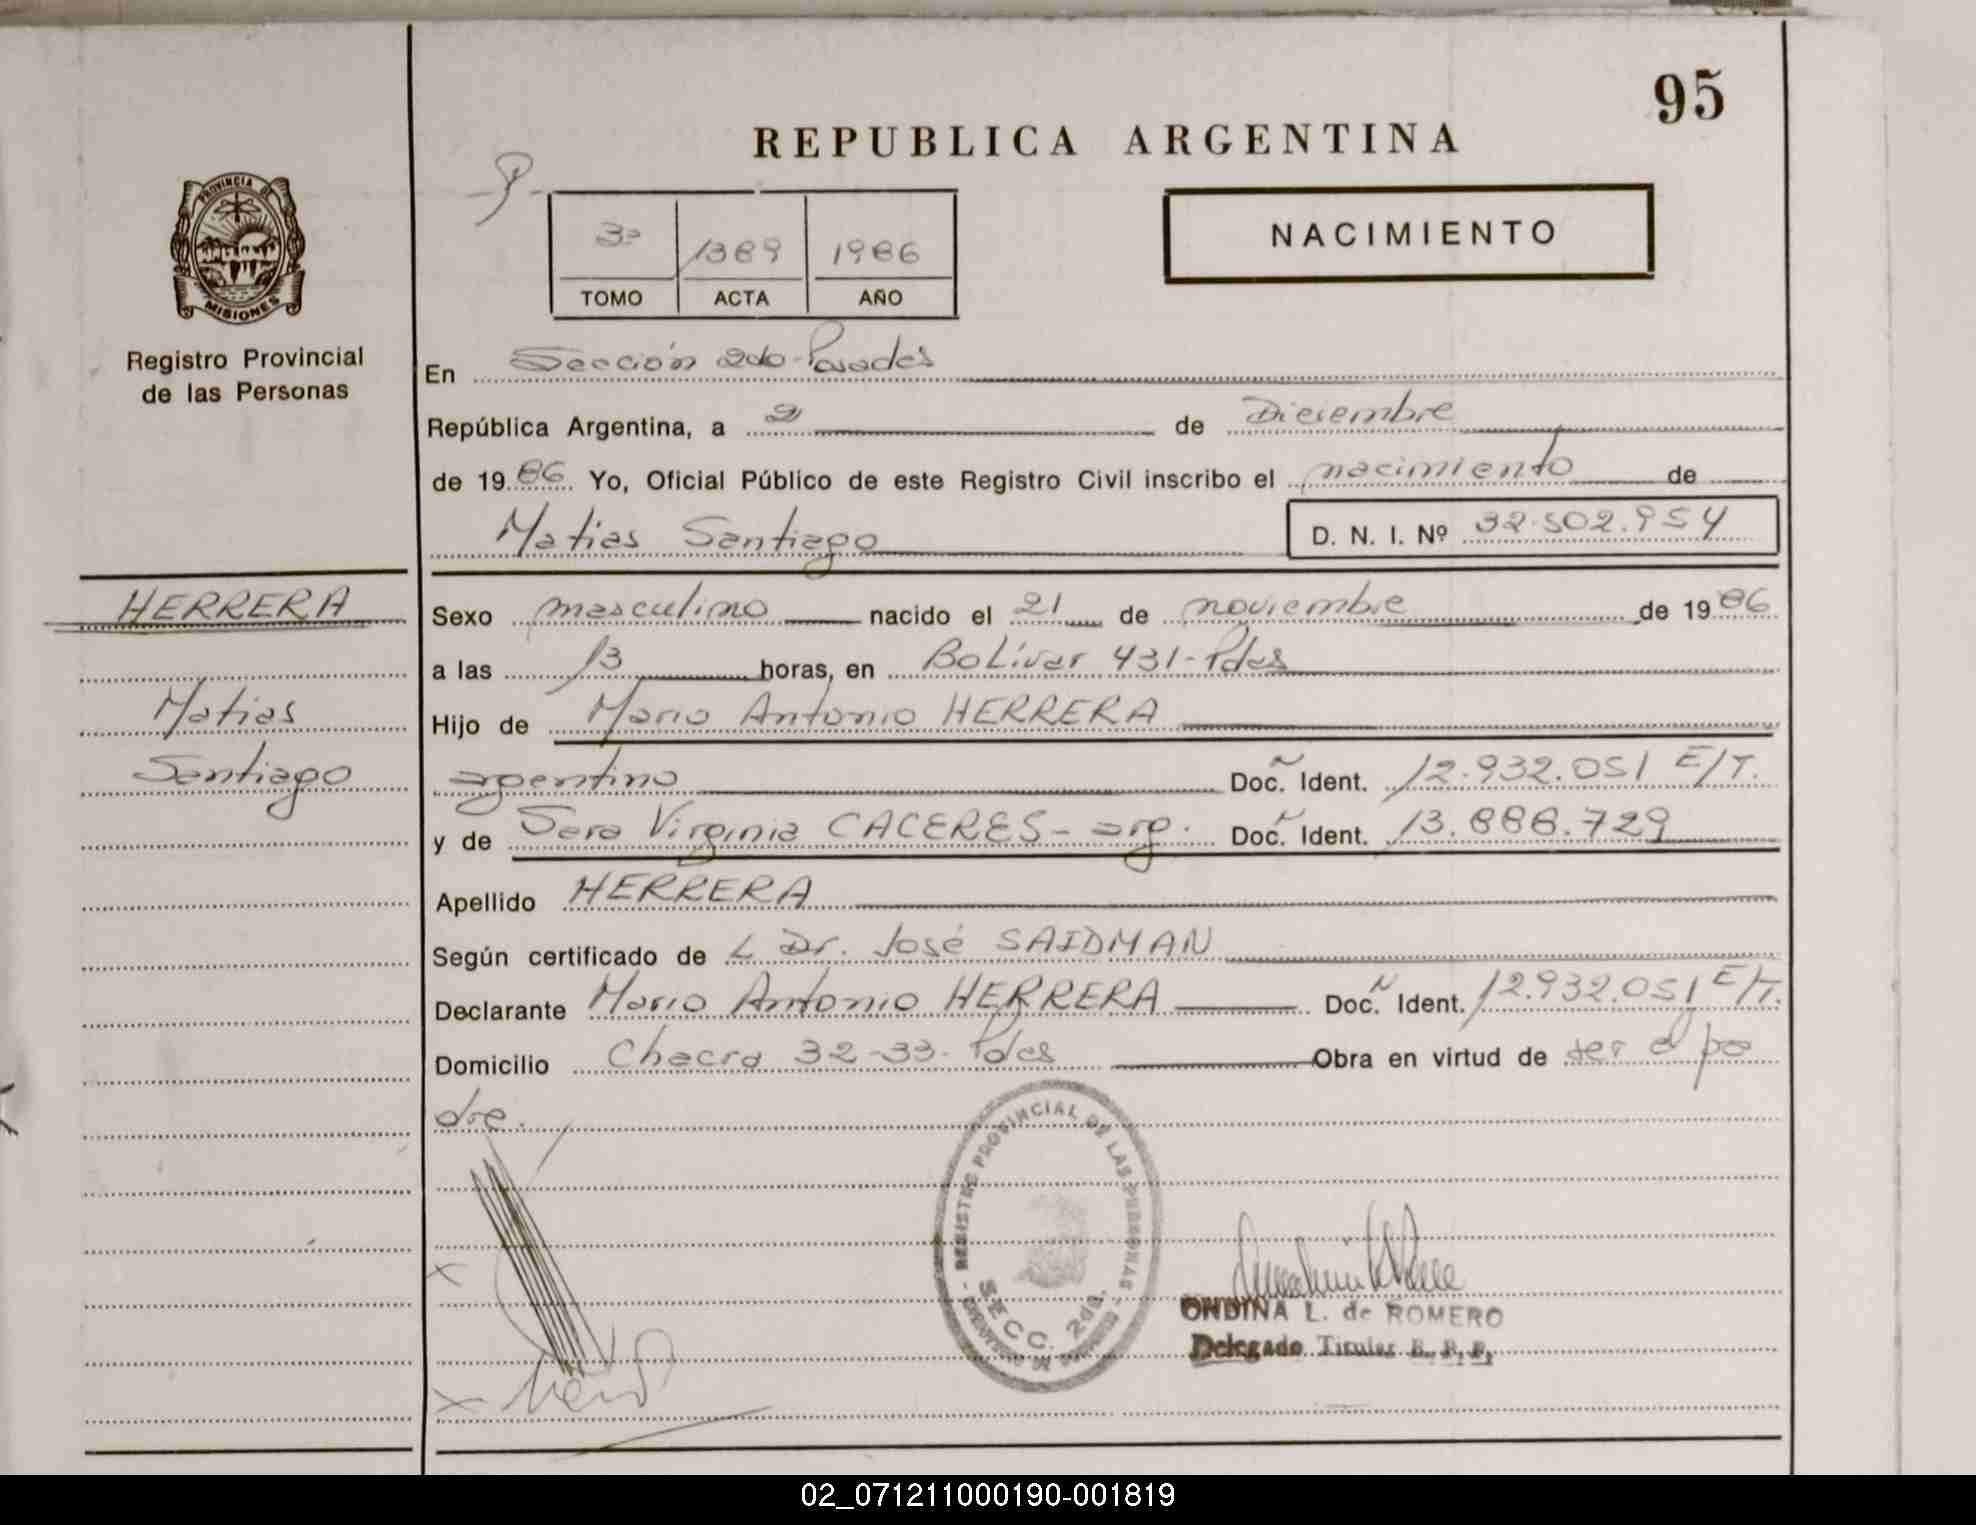 95
REPUBLICA ARGENTINA
PROVINCIA DE
MISIONES
Registro Provincial
de las Personas
3º 1389 1986
TOMO ACTA AÑO
NACIMIENTO
En Sección 2da-Posadas
República Argentina, a 2 de Diciembre
de 1986 Yo, Oficial Público de este Registro Civil inscribo el nacimiento de
Matias Santiago D. N. I. Nº 32.502.954
HERRERA
Matias
Santiago
Sexo masculino nacido el 21 de noviembre de 1986
a las 13 horas, en Bolívar 431-Pdas
Hijo de Mario Antonio HERRERA
argentino Doc. Ident. 12.932.051 E/T.
y de Sara Virginia CACERES- arg. Doc. Ident. 13.888.729
Apellido HERRERA
Según certificado de L Dr. José SAIDMAN
Declarante Mario Antonio HERRERA Doc. Ident. 12.932.051 E/T.
Domicilio Chacra 32-33-Pdas Obra en virtud de ser el pa
dre.
REGISTRO PROVINCIAL DE LAS PERSONAS
SECC. 2da.
ONDINA L. de ROMERO
Delegado Titular R. P. P.
02_071211000190-001819